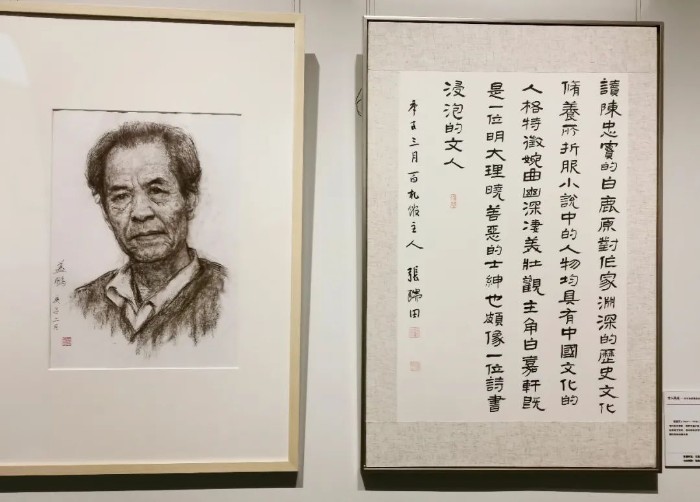 讀陳忠實的白鹿原對作家淵深的歷史文化
脩養所折服小說中的人物均具有中國文化的
人格特徵婉曲幽深淒美壯觀主角白嘉軒既
是一位明大理曉善惡的士紳也頗像一位詩書
浸泡的文人
辛丑三月百札館主人張瑞田